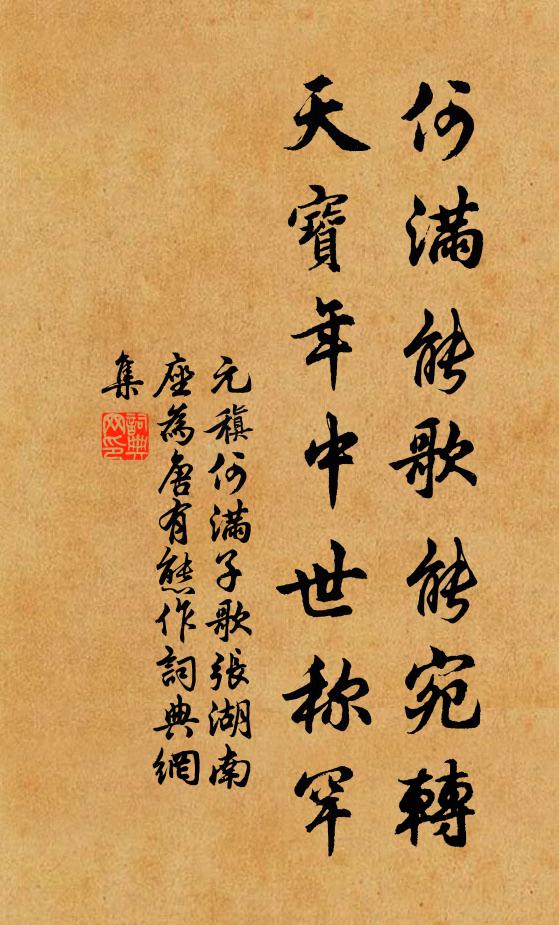 何满能歌能宛轉
天寶年中世称罕
元稹何满子歌張湖南
座為唐有熊作詞典網
集
詞典网印